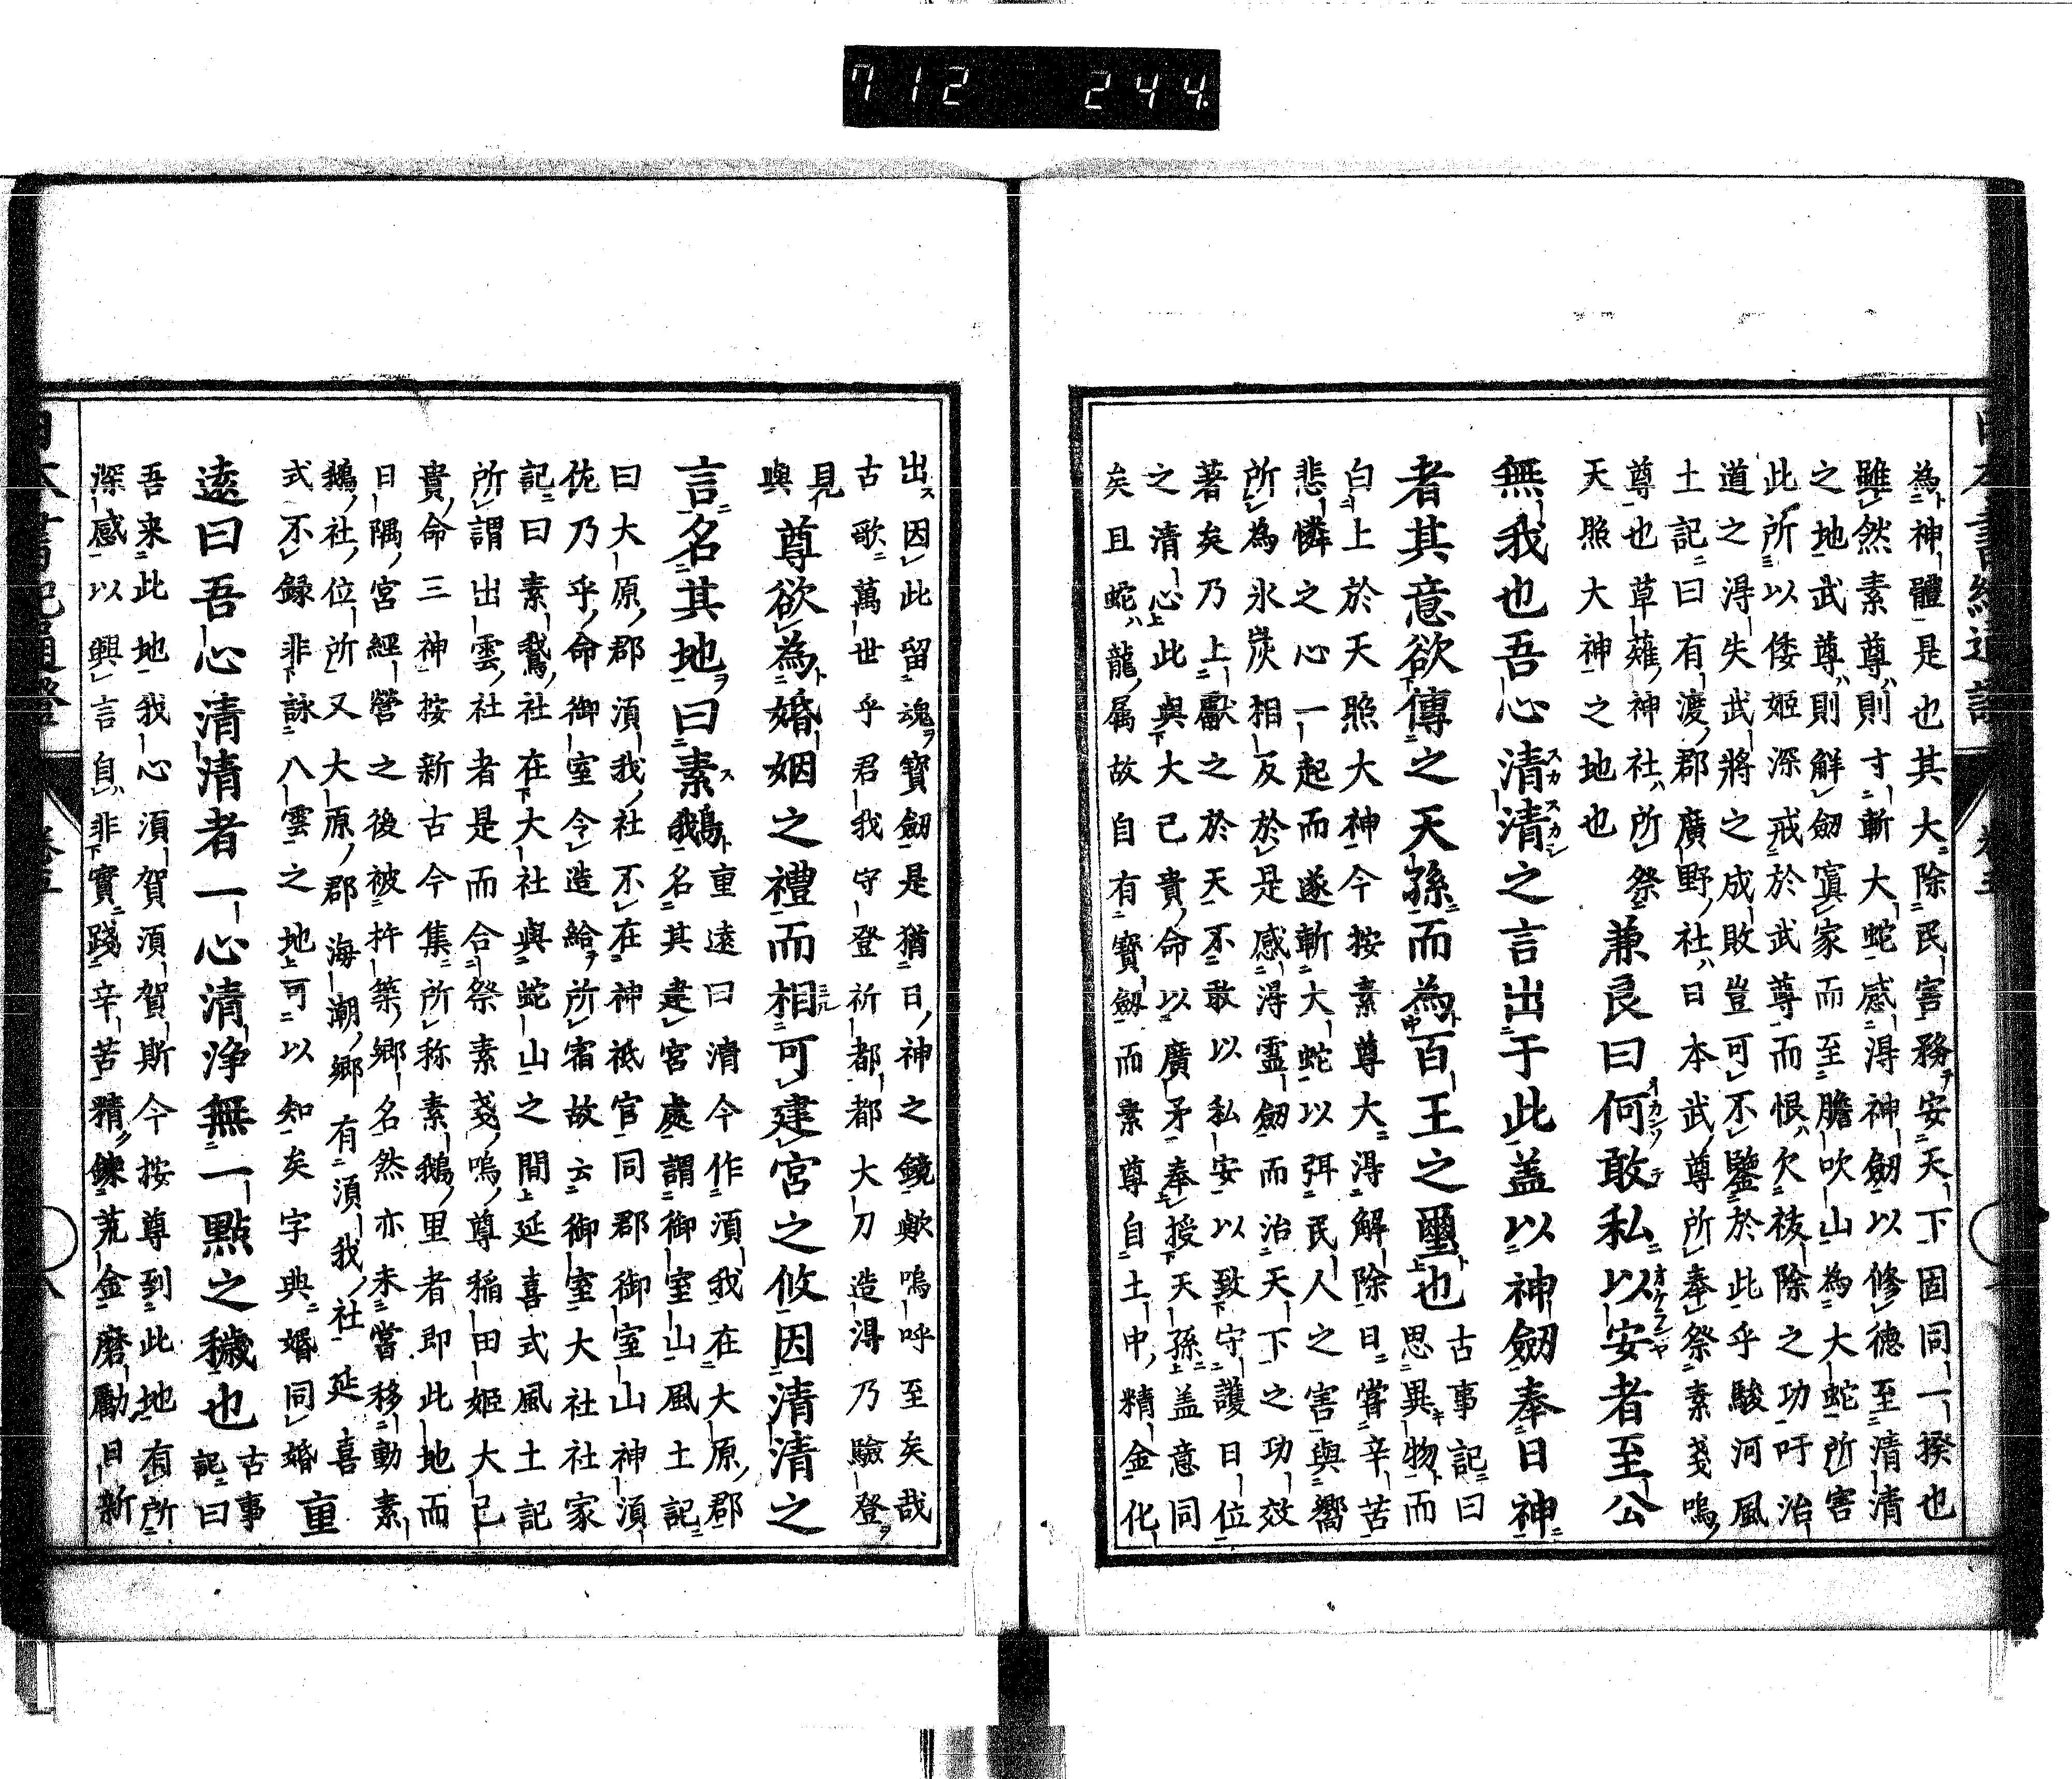 712 244
為神體是也其大除民害務安天下固同一揆也
雖然素尊則寸斬大蛇感得神劔以修德至清清
之地武尊則觧劔寘家而至膽吹山為大蛇所害
此所以倭姬深戒於武尊而恨欠祓除之功吁治
道之得失武將之成敗豈可不鑒於此乎駿河風
土記曰有渡郡廣野社日本武尊所奉祭素戔嗚
尊也草薙神社所祭
天照大神之地也
兼良曰何敢私以安者至公
無我也吾心清清之言出于此盖以神劔奉日神
者其意欲傳之天孫而為百王之璽也
古事記曰
思異物而
白上於天照大神今按素尊大得解除日嘗辛苦
悲憐之心一起而遂斬大蛇以弭民人之害與嚮
所為氷炭相反於是感得靈劔而治天下之功效
著矣乃上獻之於天不敢以私安以致守護日位
之清心此與大己貴命以廣矛奉授天孫盖意同
矣且蛇龍属故自有寶劔而素尊自土中精金化
出因此留魂寶劔是猶日神之鏡歟嗚呼至矣哉
古歌萬世乎君我守登祈都都大刀造得乃驗登
見
與尊欲為婚姻之禮而相可建宮之攸因清清之
言名其地曰素鵝
重遠曰清今作須我在大原郡
名其建宮處謂御室山風土記
曰大原郡須我社不在神祇官同郡御室山神須
佐乃乎命御室令造給所宿故云御室大社社家
記曰素鵝社在大社與蛇山之間延喜式風土記
所謂出雲社者是而合祭素戔嗚尊稲田姫大己
貴命三神按新古今集所称素鵝里者即此地而
日隅宮經營之後被杵築郷名然亦未嘗移動素
鵝社位所又大原郡海潮郷有須我社延喜
式不錄非詠八雲之地可以知矣字典婚同婚
重
遠曰吾心清清者一心清浄無一點之穢也
古事
記曰
吾来此地我心須賀須賀斯今按尊到此地有所
深感以興言自非實踐辛苦精鍊荒金磨勵日新